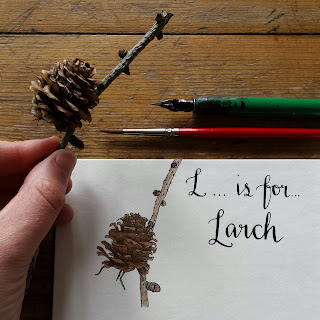 L ... is for...
Larch